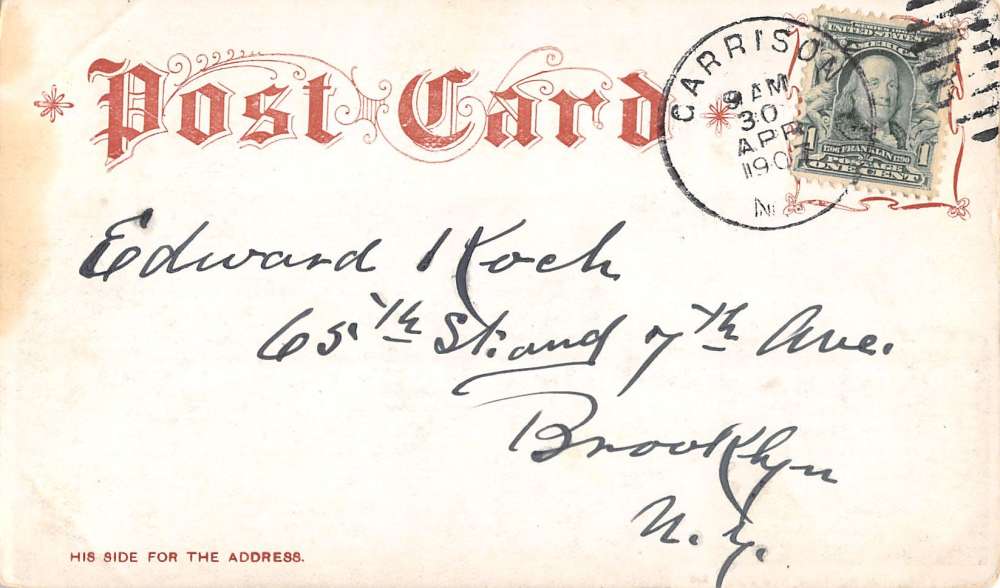 Post Card
GARRISON
9 AM
30
APR
190
N
SERIES 1902
UNITED STATES OF
AMERICA
1 1
1706 FRANKLIN 1790
POSTAGE
ONE CENT
Edward Koch
65th St. and 7th Ave.
Brooklyn
N. Y.
HIS SIDE FOR THE ADDRESS.